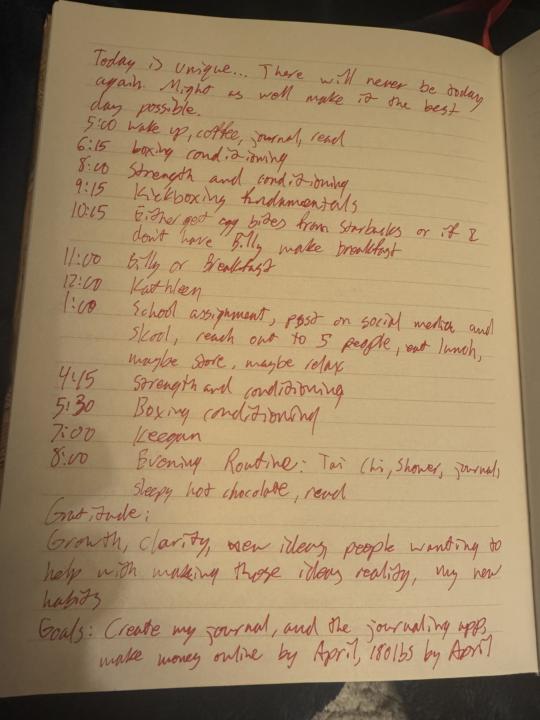 Today is unique... There will never be today
again. Might as well make it the best
day possible.
5:00 wake up, coffee, journal, read
6:15 boxing conditioning
8:00 Strength and conditioning
9:15 Kickboxing fundamentals
10:15 Either get egg bites from Starbucks or if I
don't have Billy make breakfast
11:00 Billy or Breakfast
12:00 Kathleen
1:00 School assignment, post on social media and
Skool, reach out to 5 people, eat lunch,
maybe store, maybe relax
4:15 Strength and conditioning
5:30 Boxing conditioning
7:00 Keegan
8:00 Evening Routine: Tai Chi, shower, journal,
sleepy hot chocolate, read
Gratitude:
Growth, clarity, new ideas, people wanting to
help with making those ideas reality, my new
habits
Goals: Create my journal, and the journaling app,
make money online by April, 180lbs by April